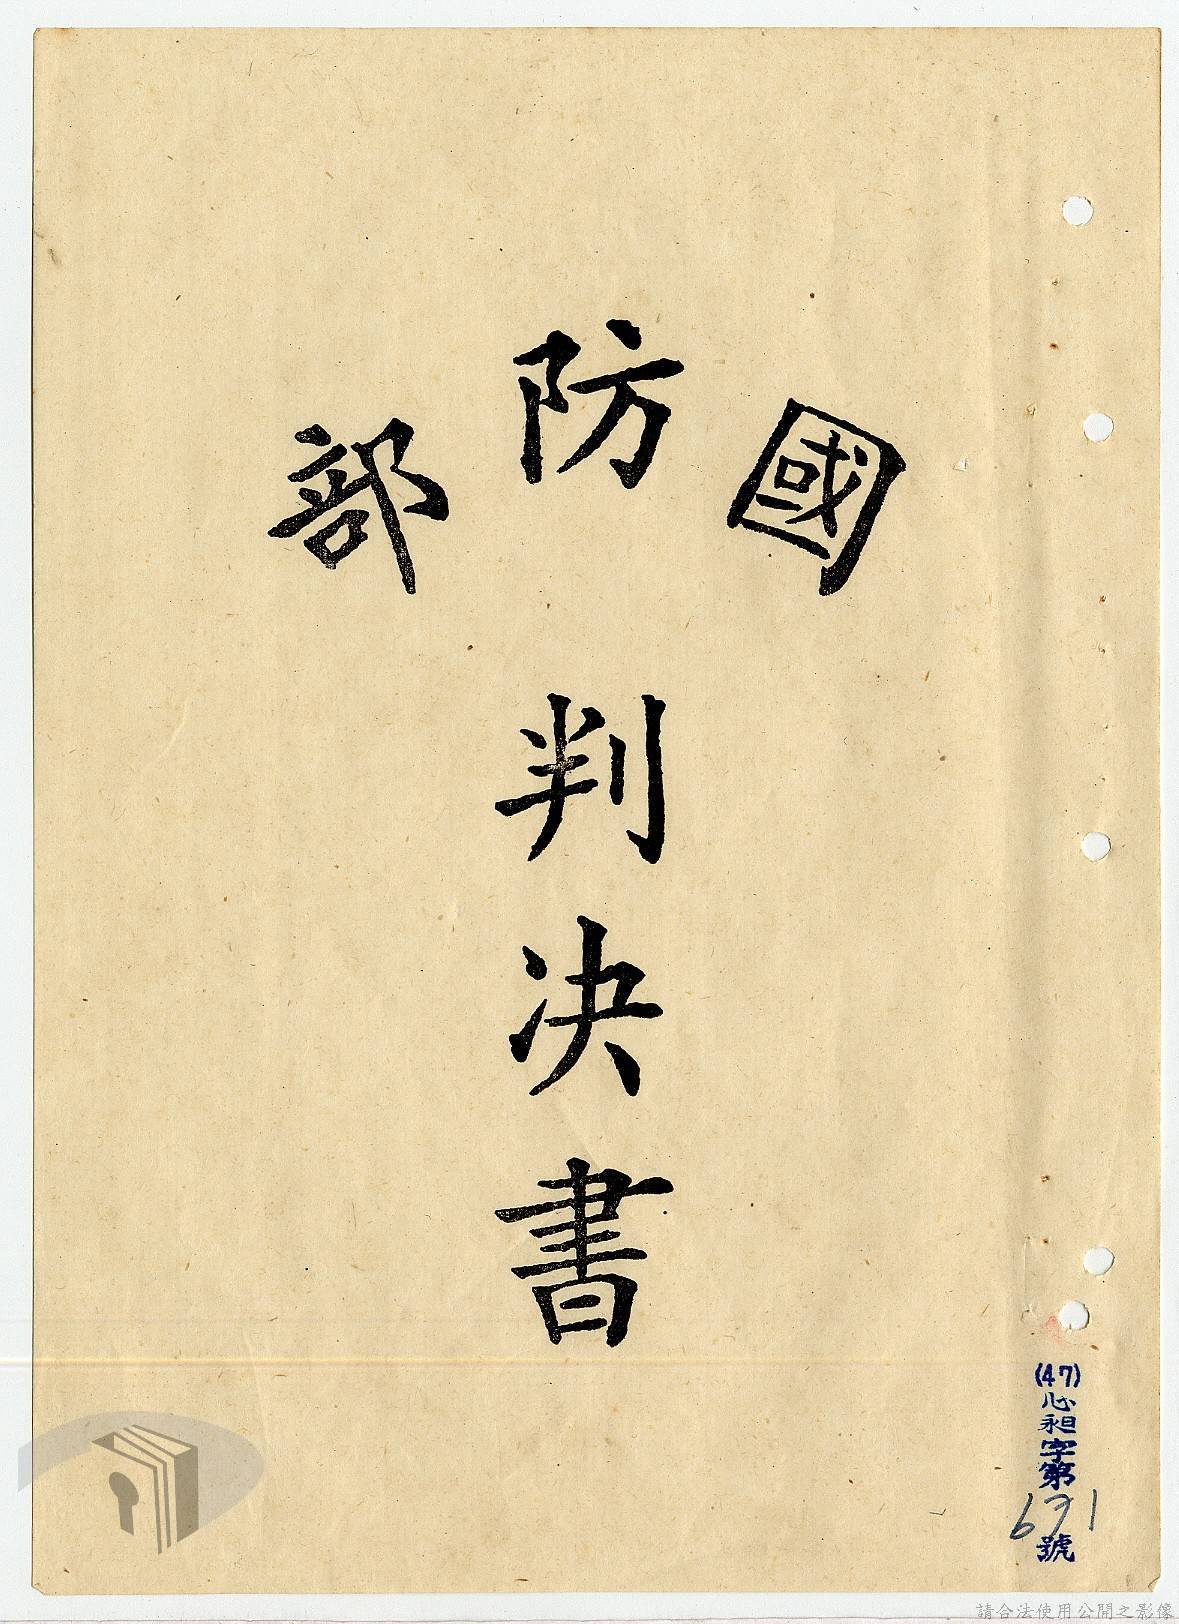 國防部
判決書
(47)心䄷字第
671
號
請合法使用公開之影像